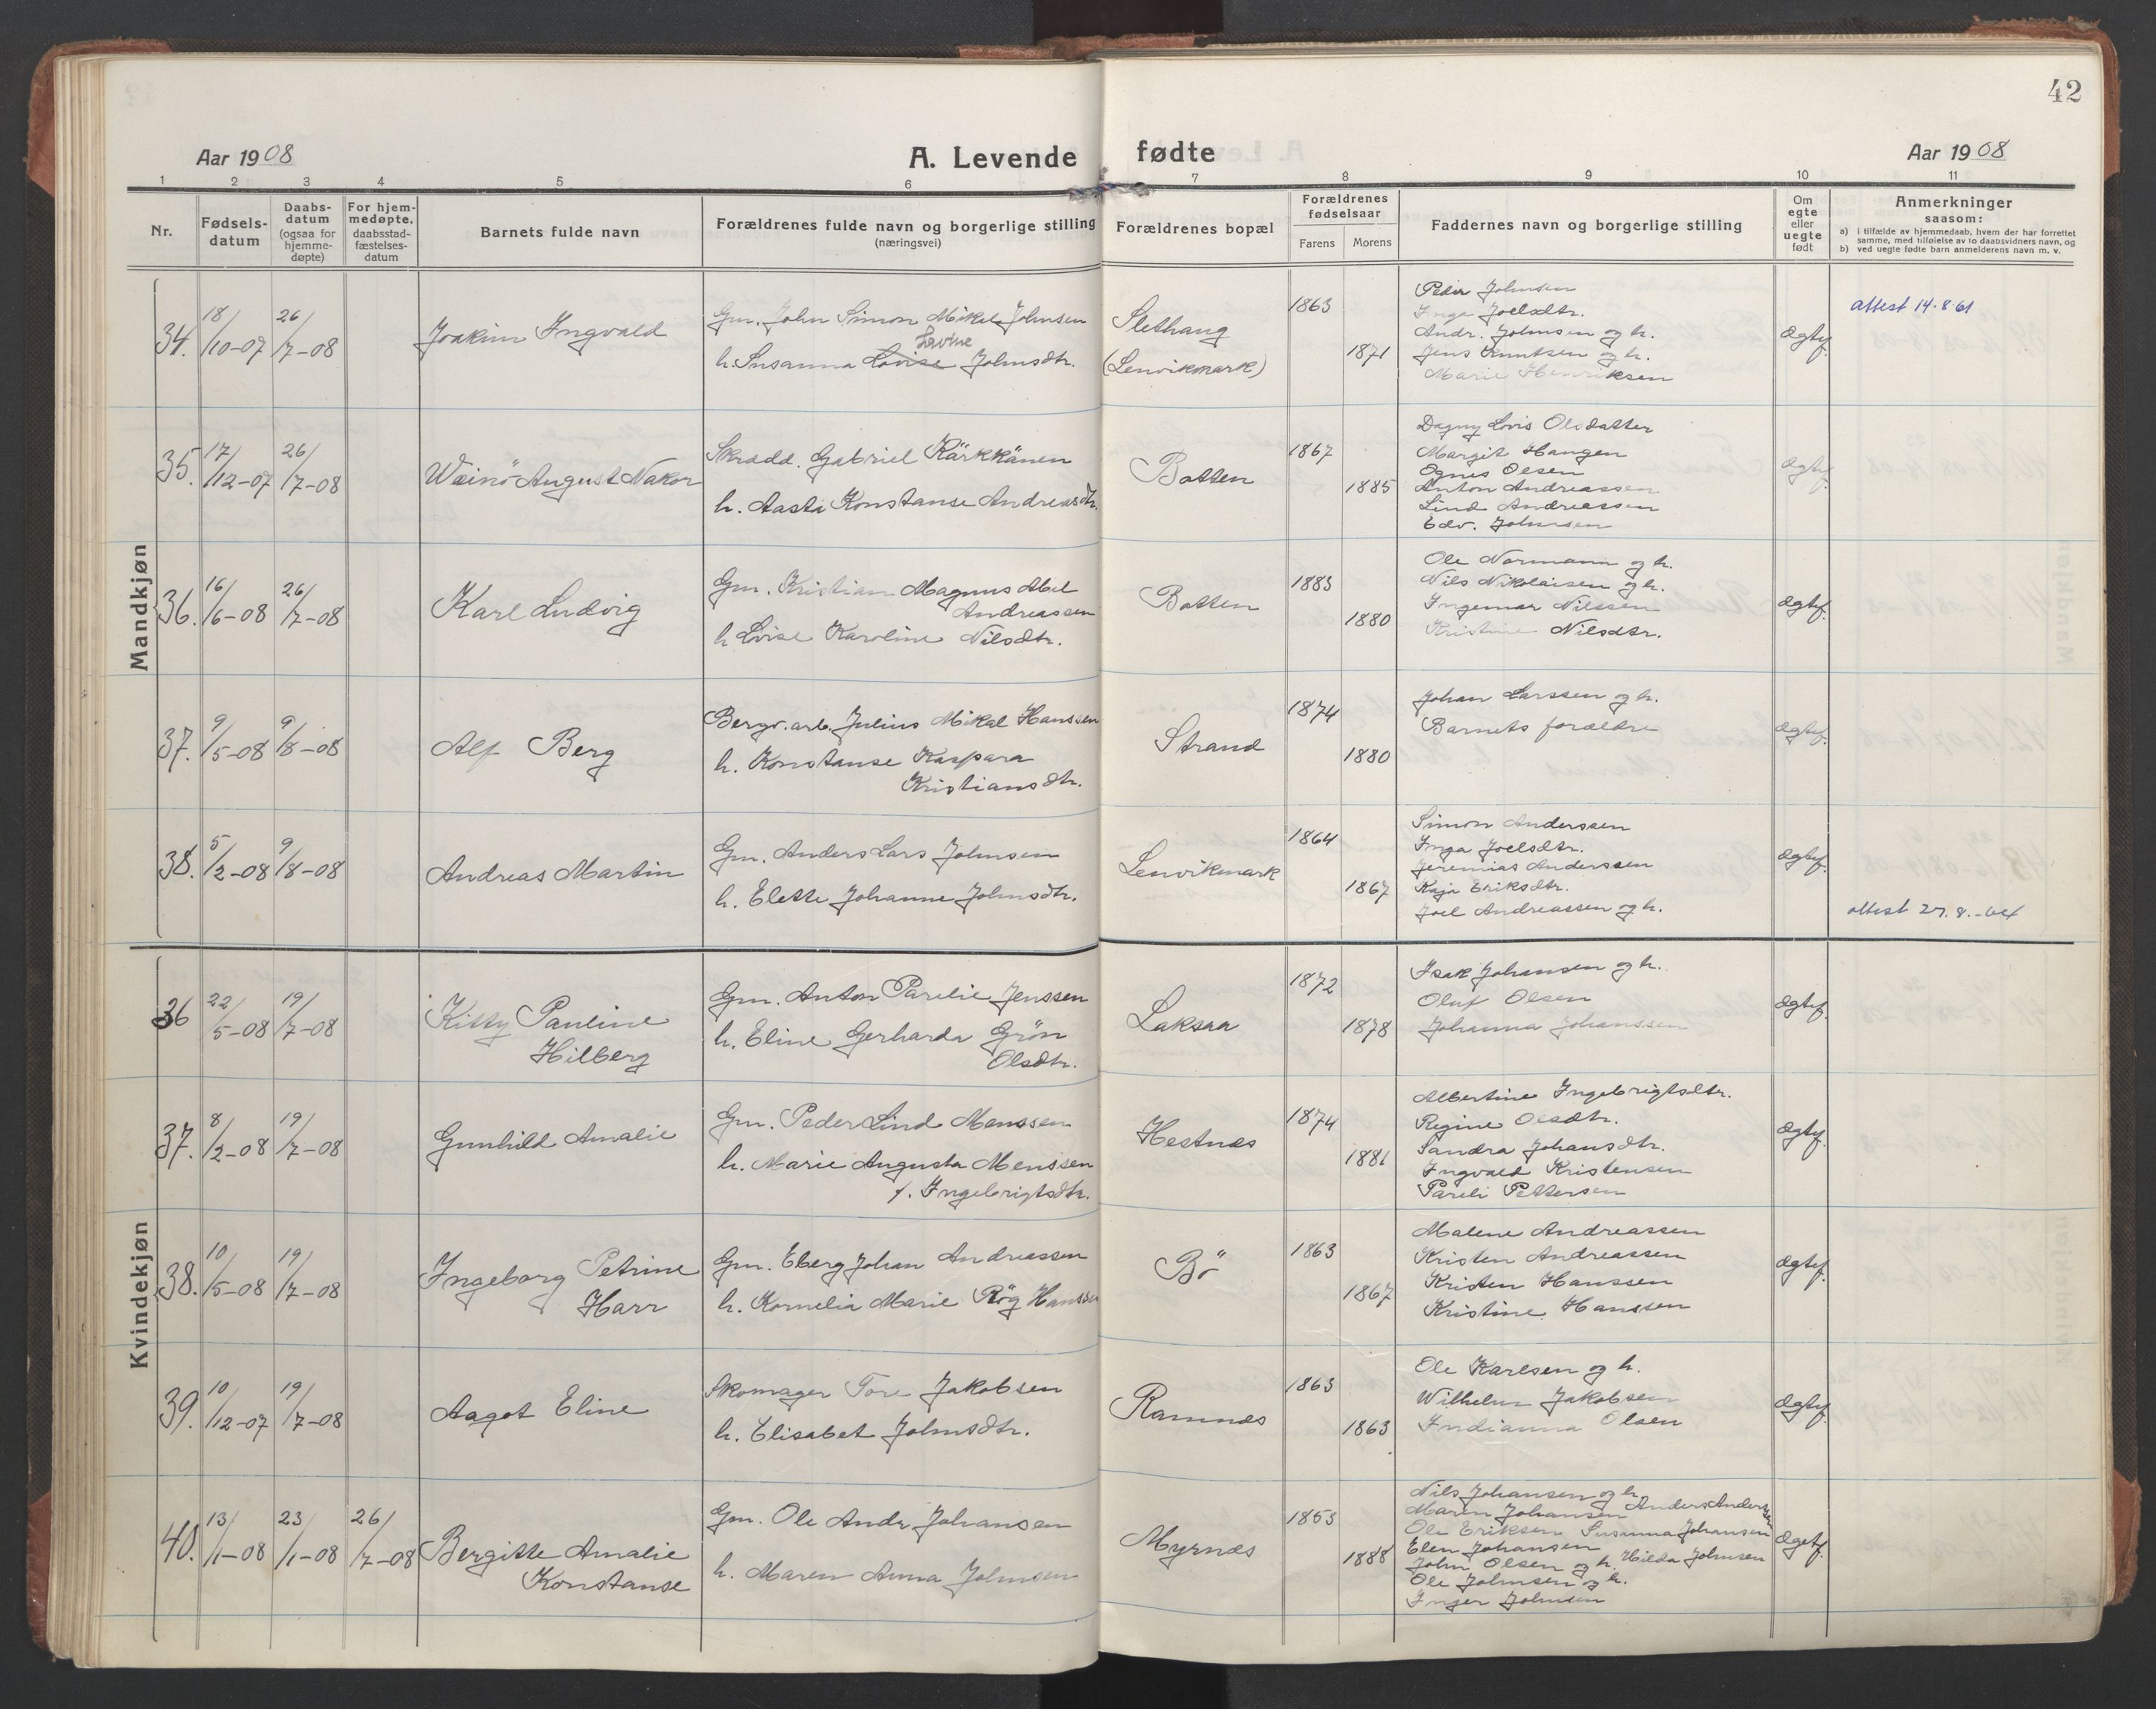 42
Aar 1908
A. Levende fødte
Aar 1908
1 2 3 4 5 6 7 8 9 10 11
Nr.
Fødsels-
datum
Daabs-
datum
(ogsaa for
hjemme-
døpte)
For hjem-
medøpte,
daabsstad-
fæstelses-
datum
Barnets fulde navn
Forældrenes fulde navn og borgerlige stilling
(næringsvei)
Forældrenes bopæl
Forældrenes
fødselsaar
Farens Morens
Faddernes navn og borgerlige stilling
Om
egte
eller
uegte
født
Anmerkninger
saasom:
a) i tilfælde av hjemmedaab, hvem der har forrettet
samme, med tilføielse av to daabsvidners navn, og
b) ved uegte fødte barn anmelderens navn m. v.
Mandkjøn
34. 18/10-07 26/7-08
Joakim Ingvald
Gm. John Simon Mikal Johnsen
Lavine
h. Susanna Lovise Johnsdtr.
Slethaug
(Lenvikmark)
1863
1871
Peder Johnsen
Inga Joelsdtr.
Andr. Johnsen og h.
Jens Knutsen og h.
Marie Henriksen
ægtef.
attest 14.8 61
35. 17/12-07 26/7-08
Weinö August Nakor
Skrædd. Gabriel Kärkkänen
h. Aasta Konstanse Andreasdtr.
Botten
1867
1885
Dagny Lovis Olsdatter
Margit Haugen
Ognes Olsen
Anton Andreassen
Lind Andreassen
Edv. Johnsen
ægtef.
36. 16/6-08 26/7-08
Karl Ludvig
Gm. Kristian Magnus Abel
Andreassen
h. Lovise Karoline Nilsdtr.
Botten
1883
1880
Ole Normann og h.
Nils Nikolaisen og h.
Ingemar Nilssen
Kristine Nilsdtr.
ægtef.
37. 9/5-08 9/8-08
Alf Berg
Bergv.arb. Julius Mikal Hanssen
h. Konstanse Kaspara
Kristiansdtr.
Strand
1874
1880
Johan Larssen og h.
Barnets forældre
ægtef.
38. 5/2-08 9/8-08
Andreas Martin
Gm. Anders Lars Johnsen
h. Elette Johanne Johnsdtr.
Lenvikmark
1864
1867
Simon Anderssen
Inga Joelsdtr.
Jeremias Anderssen
Kaja Eriksdtr.
Joel Andreassen og h.
ægtef.
attest 27.8.-64
Kvindekjøn
36 22/5-08 19/7-08
Kitty Pauline
Hilberg
Gm. Anton Parelie Jenssen
h. Eline Gerharda Grön
Olsdtr.
Laksaa
1872
1878
Isak Johansen og h.
Oluf Olsen
Johanna Johanssen
ægtef.
37. 8/2-08 19/7-08
Gunhild Amalie
Gm. Peder Lind Menssen
h. Marie Augusta Menssen
f. Ingebrigtsdtr.
Hestnæs
1874
1881
Albertine Ingebrigtsdtr.
Regine Olsdtr.
Sandra Johansdtr.
Ingvald Kristensen
Pareli Pettersen
ægtef.
38. 10/5-08 19/7-08
Ingeborg Petrine
Harr
Gm. Eberg Johan Andreassen
h. Kornelia Marie Røg Hanssen
Bö
1863
1867
Malene Andreassen
Kristen Andreassen
Kristen Hanssen
Kristine Hanssen
ægtef.
39. 10/12-07 19/7-08
Aagot Eline
Skomager Tore Jakobsen
h. Elisabet Johnsdtr.
Ramnæs
1863
1863
Ole Karlsen og h.
Wilhelm Jakobsen
Indianna Olsen
ægtef.
40. 13/1-08 23/1-08 26/7-08
Bergitte Amalie
Konstanse
Gm. Ole Andr Johansen
h. Maren Anna Johnsen
Myrnæs
1853
1888
Nils Johansen og h.
Maren Johansen Anders Andersen
Ole Eriksen Susanna Johansen
Elen Johansen
John Olsen og h. Hilda Johnsen
Ole Johnsen og h.
Inger Johnsen
ægtef.